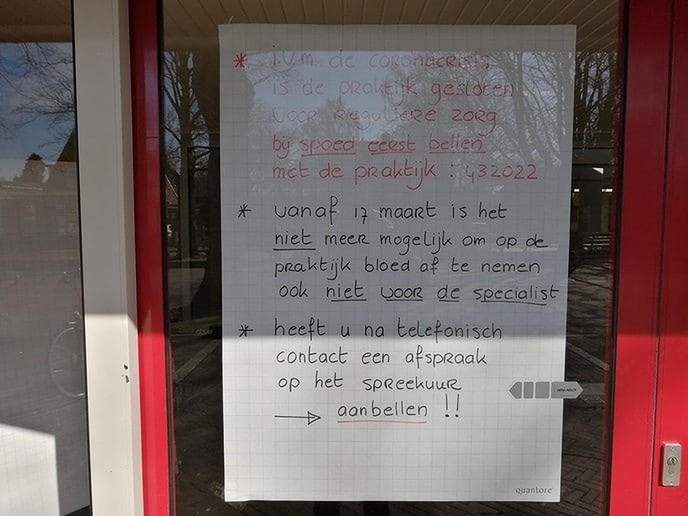 * I.v.m. de coronacrisis
is de praktijk gesloten
voor reguliere zorg
bij spoed eerst bellen
met de praktijk : 432022
* vanaf 17 maart is het
niet meer mogelijk om op de
praktijk bloed af te nemen
ook niet voor de specialist
* heeft u na telefonisch
contact een afspraak
op het spreekuur
→ aanbellen !!
quantore